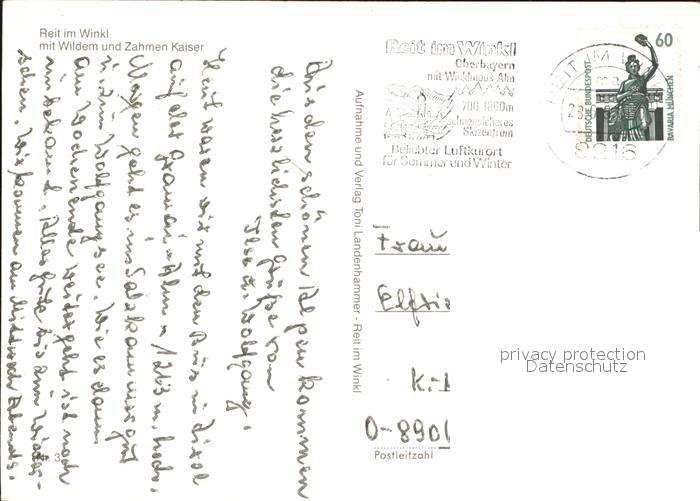 Reit im Winkl
mit Wildem und Zahmen Kaiser
Aus den schönen Alpen kommen
die herzlichsten Grüße von
Ilse u. Wolfgang.
Heut waren wir mit den Bus in Tirol
auf der Gramai-Alm 1263 m. hoch.
Morgen geht es ins Salzkammergut
u. zum Wolfgangsee. Wie es dann
am Wochenende weitergeht ist noch
unbekannt. Alles gute bis zum Wieder-
sehen. Wir kommen am Mittwoch Abends.
3
Aufnahme und Verlag Toni Landenhammer - Reit im Winkl
Reit im Winkl
Oberbayern
mit Winklmoos-Alm
700-1860m
schneesicheres
Skizentrum
Beliebter Luftkurort
für Sommer und Winter
REIT IM
8216
60
DEUTSCHE BUNDESPOST
BAVARIA MÜNCHEN
Frau
Elfri
K.-
D-890
Postleitzahl
privacy protection
Datenschutz